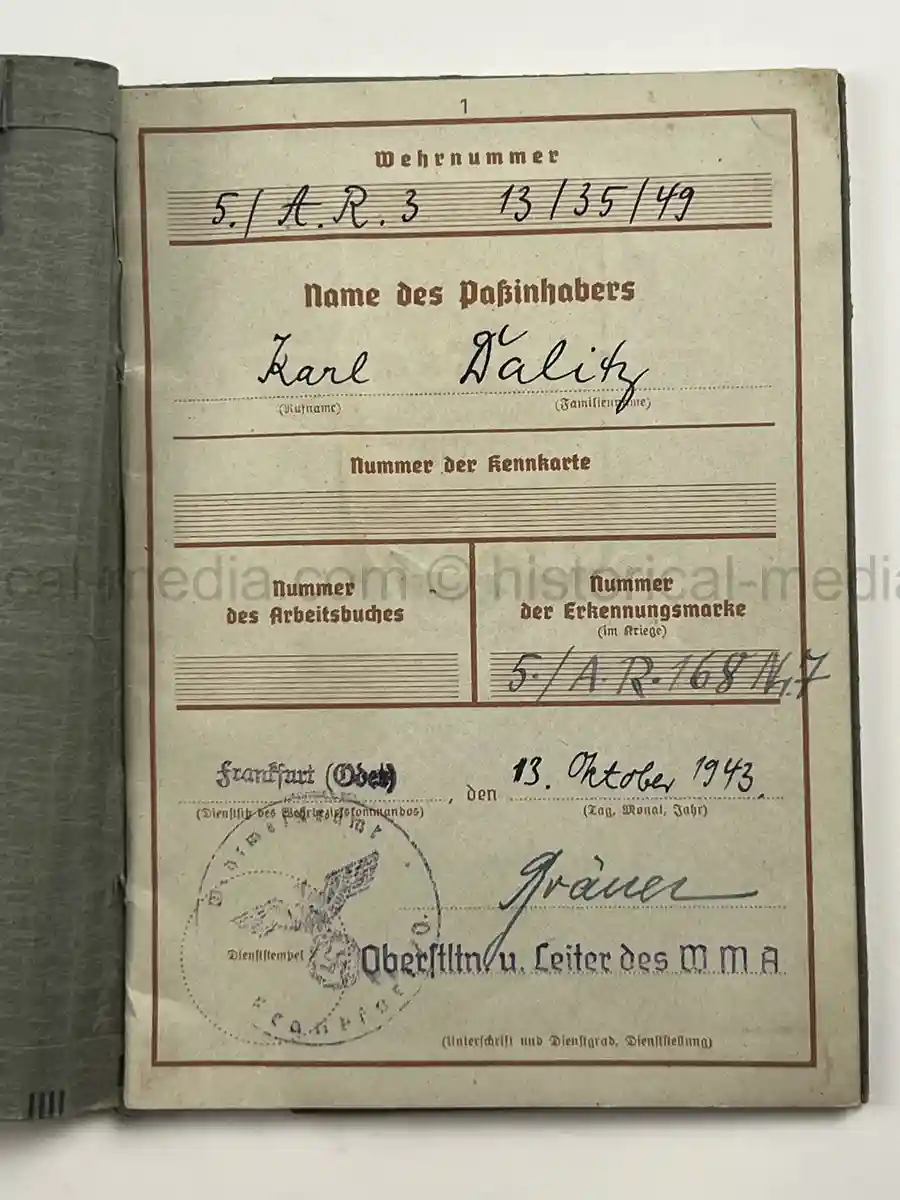 1
Wehrnummer
5./A.R.3 13/35/49
Name des Paßinhabers
Karl Dalitz
(Rufname) (Familienname)
Nummer der Kennkarte
cal-media.com © historical-media
Nummer des Arbeitsbuches
Nummer der Erkennungsmarke
(im Kriege)
5./A.R.168 Nr.7
Frankfurt (Oder), den 13. Oktober 1943.
(Dienstsitz des Wehrbezirkskommandos) (Tag, Monat, Jahr)
Gräner
Dienststempel
Oberstltn. u. Leiter des W M A
(Unterschrift und Dienstgrad, Dienststellung)